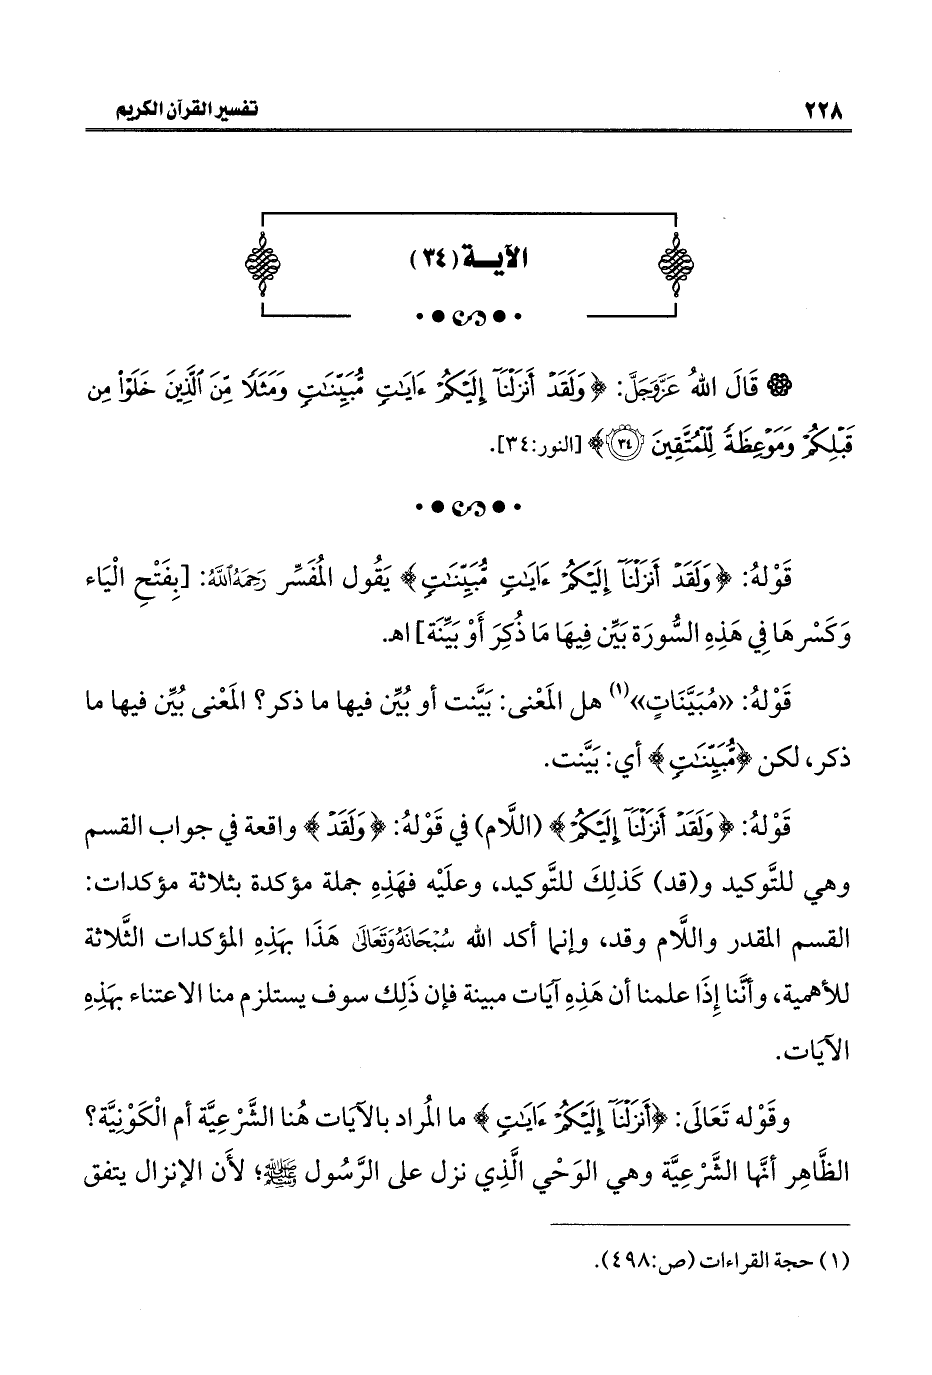 ٢٢٨ تفسير القرآن الكريم
الآيــة (٣٤)
قَالَ اللهُ عَزَّوَجَلَّ: ﴿وَلَقَدْ أَنزَلْنَآ إِلَيْكُمْ ءَايَٰتٍ مُّبَيِّنَٰتٍ وَمَثَلًا مِّنَ ٱلَّذِينَ خَلَوْا۟ مِن
قَبْلِكُمْ وَمَوْعِظَةً لِّلْمُتَّقِينَ ٣٤﴾ [النور:٣٤].
قَوْلهُ: ﴿وَلَقَدْ أَنزَلْنَآ إِلَيْكُمْ ءَايَٰتٍ مُّبَيِّنَٰتٍ﴾ يَقُول المُفَسِّر رَحِمَهُ اللَّهُ: [بِفَتْحِ الْيَاء
وَكَسْرهَا فِي هَذِهِ السُّورَة بَيِّن فِيهَا مَا ذُكِرَ أَوْ بَيِّنَة] اهـ.
قَوْلهُ: «مُبَيَّنَاتٍ»(١) هل المَعْنى: بَيَّنت أو بُيِّن فيها ما ذكر؟ المَعْنى بُيِّن فيها ما
ذكر، لكن ﴿مُّبَيِّنَٰتٍ﴾ أي: بَيَّنت.
قَوْلهُ: ﴿وَلَقَدْ أَنزَلْنَآ إِلَيْكُمْ﴾ (اللَّام) في قَوْلهُ: ﴿وَلَقَدْ﴾ واقعة في جواب القسم
وهي للتَّوكيد و(قد) كَذلِكَ للتَّوكيد، وعلَيْه فهَذِهِ جملة مؤكدة بثلاثة مؤكدات:
القسم المقدر واللَّام وقد، وإنما أكد الله سُبْحَانَهُ وَتَعَالَى هَذَا بهَذِهِ المؤكدات الثَّلاثة
للأهمية، وأنَّنا إِذَا علمنا أن هَذِهِ آيات مبينة فإن ذَلِك سوف يستلزم منا الاعتناء بهَذِهِ
الآيَات.
وقَوْله تَعَالَى: ﴿أَنزَلْنَآ إِلَيْكُمْ ءَايَٰتٍ﴾ ما المُراد بالآيَات هُنا الشَّرْعِيَّة أم الْكَوْنِيَّة؟
الظَّاهِر أنَّها الشَّرْعِيَّة وهي الوَحْي الَّذِي نزل على الرَّسُول ﷺ؛ لأَن الإنزال يتفق
(١) حجة القراءات (ص:٤٩٨).